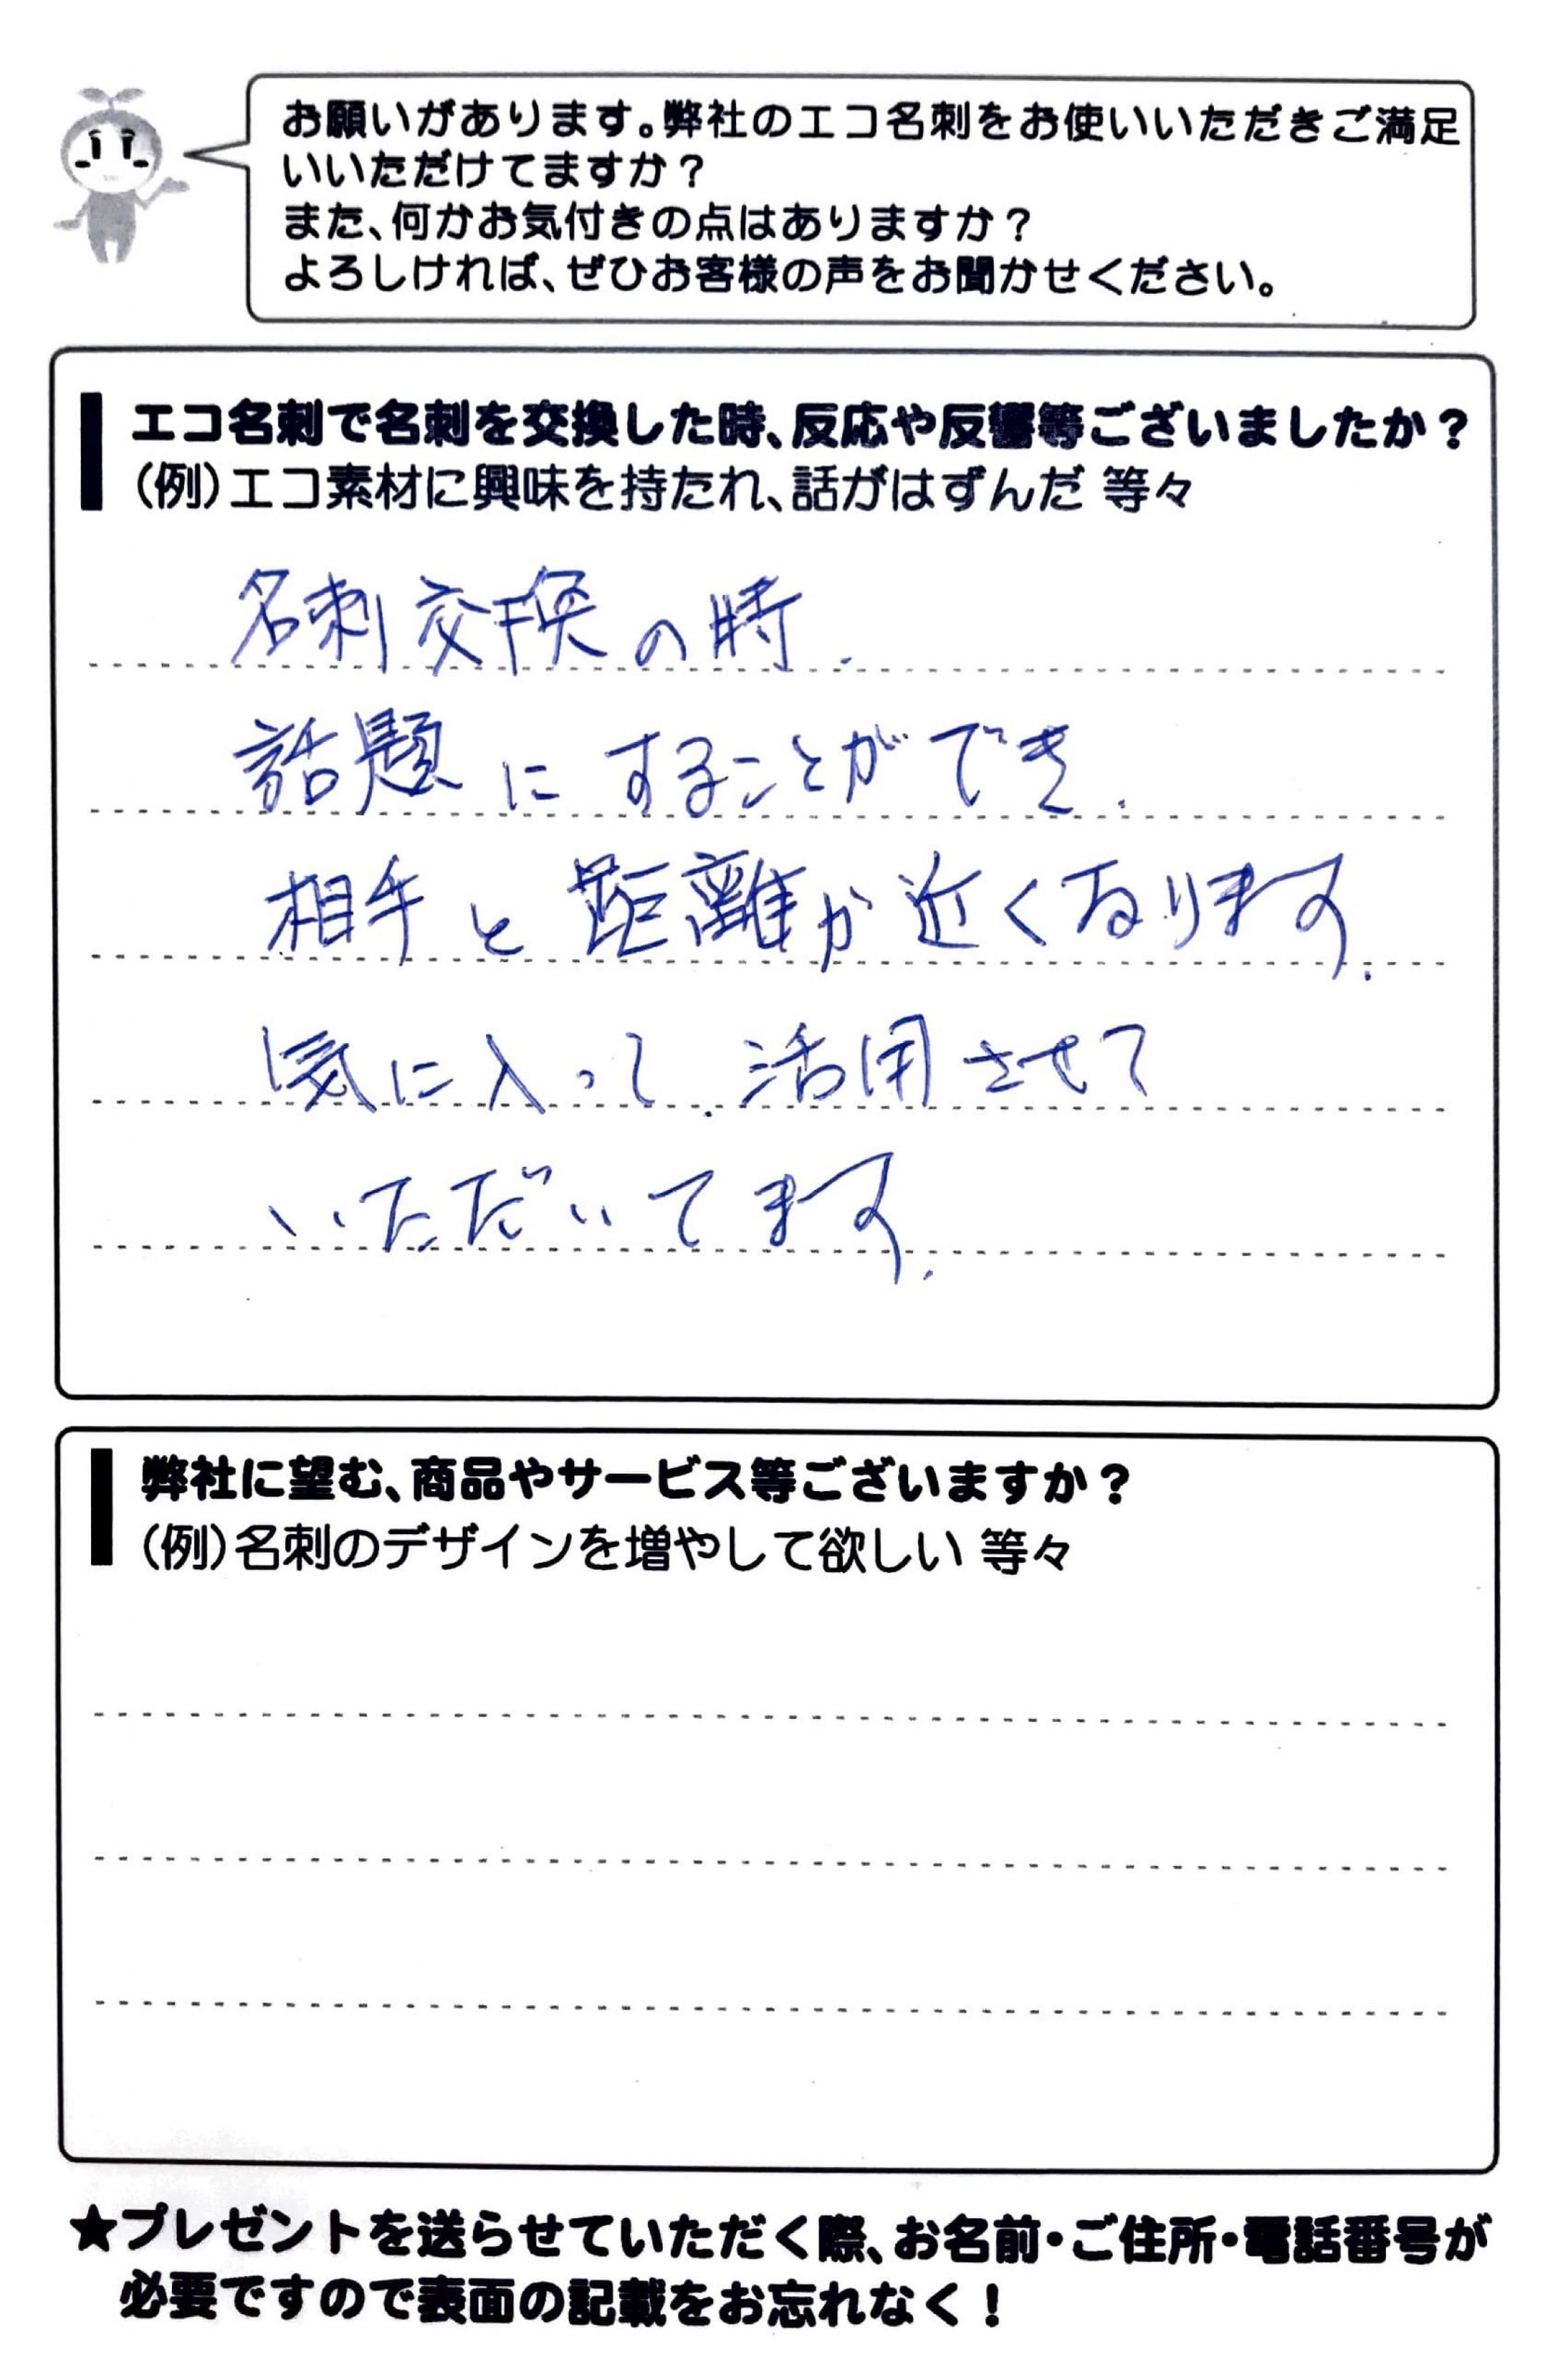 お願いがあります。弊社のエコ名刺をお使いいただきご満足
いいただけてますか？
また、何かお気付きの点はありますか？
よろしければ、ぜひお客様の声をお聞かせください。
エコ名刺で名刺を交換した時、反応や反響等ございましたか？
（例）エコ素材に興味を持たれ、話がはずんだ 等々
名刺交換の時、
話題にすることができ、
相手と距離が近くなります。
気に入って、活用させて
いただいてます。
弊社に望む、商品やサービス等ございますか？
（例）名刺のデザインを増やして欲しい 等々
★プレゼントを送らせていただく際、お名前・ご住所・電話番号が
必要ですので表面の記載をお忘れなく！